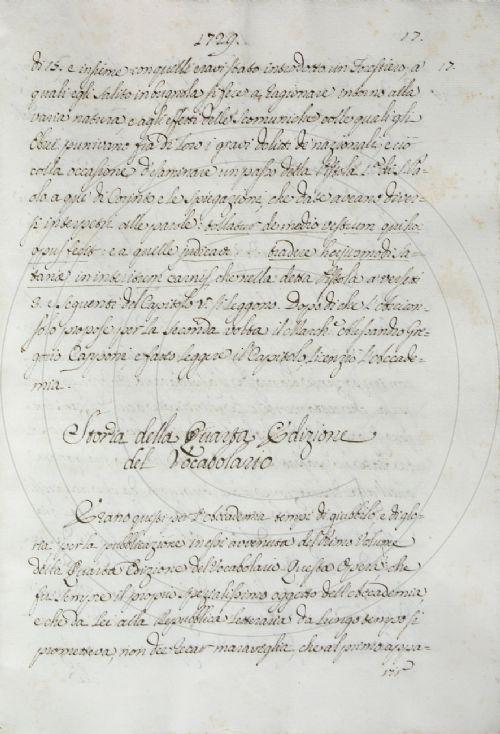 1729. 17.
di 15. e insieme con quelli eravi stato introdotto un Forestiero, a 17.
quali egli salito in bugnola si fece a ragionare intorno alla
varia natura, e agli effetti delle Scomuniche colle quali gli
Ebrei punivano fra di loro i gravi delitti de' nazionali, e ciò
colla occasione di esaminare un passo della Pistola 1.ª di S. Pa-
olo a que' di Corinto e le spiegazioni, che date aveano diver-
si interpetri alle parole: tollatur de medio vestrum qui hoc
opus fecit: e a quelle judicavi tradere hujusmodi Sa-
tanae in interitum carnis, che nella detta Pistola a' versetti
e seguenti del Capitolo V. si leggono. Dopo di che l'Arcicon-
solo propose per la seconda volta il March. Alessandro Gre-
gorio Capponi, e fatto leggere il Capitolo, licenziò l'Accade-
mia.
Storia della Quarta Edizione
del Vocabolario
Erano questi per l'Accademia tempi di giubbilo, e di glo-
ria per la pubblicazione in essi avvenuta del Primo Volume
della Quarta Edizione del Vocabolario. Questa Opera che
fu sempre il proprio specialissimo oggetto dell'Accademia,
e che da Lei alla Repubblica Letteraria da lungo tempo si
prometteva, non dee recar maraviglia, che al primo appa-
rir